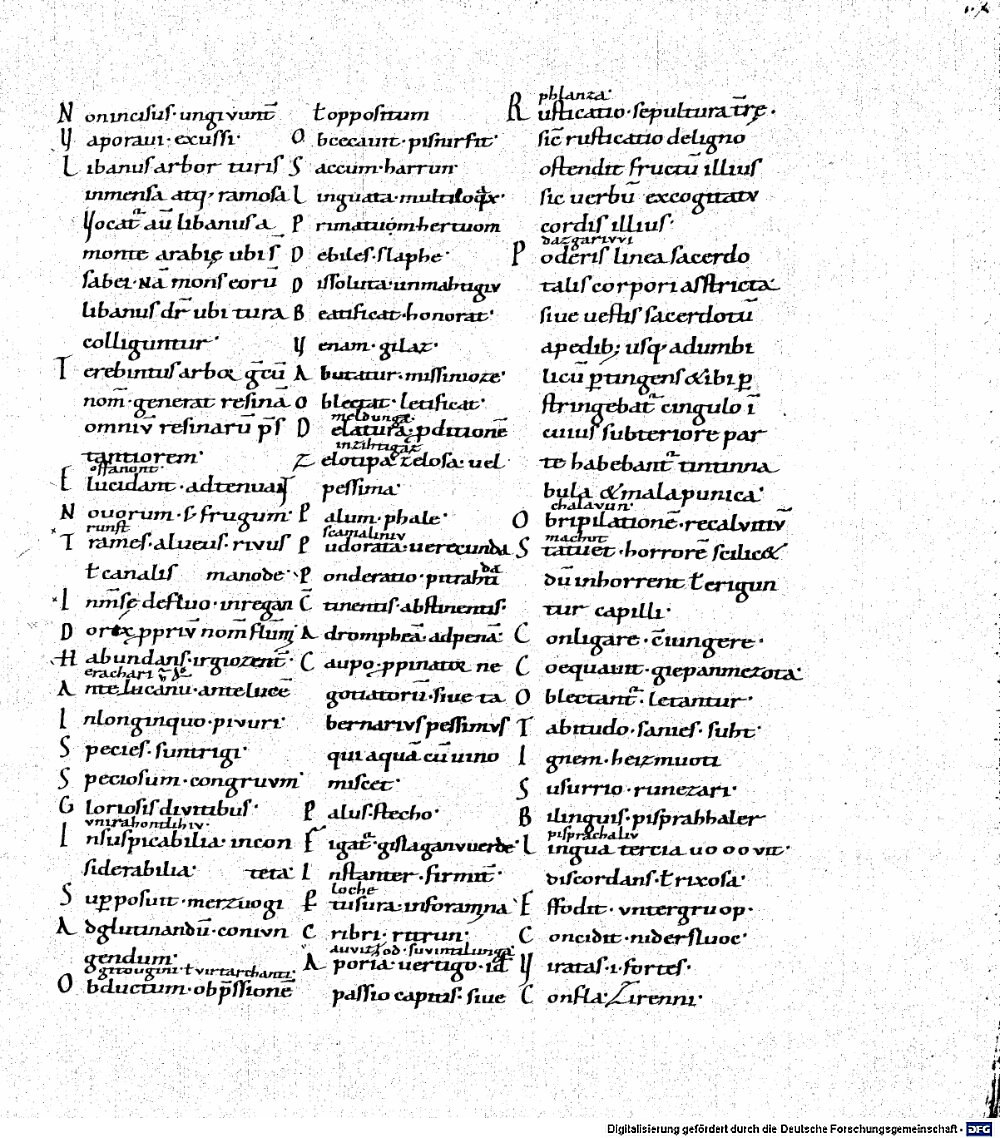 N onincisus· ungiuunt̄
V aporaui· excussi·
L ibanus arbor turis
inmensa atq; ramosa
Vocat᷑ au̅ libanus a
monte arabię ubi s̅
sabei· Na̅ mons eoru̅
libanus dr̅ ubi tura
colliguntur·
T erebintus arbor gc̅u̅
nom̅· generat resina̅
omniu̅ resinaru̅ p̅s
tantiorem·
offanont·
E lucidant· adtenuant
N ouorum· s· frugum·
runst
T rames· alueus· riuus
ł canalis manode·
I nm̅se defluo· inregan
D orix pprıu̅ nom̅ flum̅
H abundans· irgiozent̅·
erachari
A nte lucanu̅· ante luce̅
I nlonginquo· piuuri·
S pecies· suntrigi·
S peciosum· congruum·
G loriosis diuitibus·
vnirahondihiu·
I nsuspicabilia· incon
siderabilia· teta·
S upposuit· merzuogi
A dglutinandu̅· coniun
gendum·
gitougini· ł virtarchanti·
O bductum· obp̅ssione̅
ł oppositum
O bcecauit· pisurfit·
S accum· harrun·
L inguata· multiloq̅x·
P rimatuom· hertuom
D ebiles· slaphe·
D issoluta· unmahtigiu
B eatificat· honorat·
V enam· gilaz·
A butatur· missinioze·
O blectat· letificat·
meldungæ·
D elatura· pditione̅
inzihtigaz
Z elotipa· zelosa· uel
pessima·
P alum· phale·
scamaliniu
P udorata· uerecunda
P onderatio· pitrahti
C̅ tinentis· abstinentis·
A dromphea̅· adpena̅·
C aupo· ppinator ne
gotiatoru̅· siue ta
bernarius pessimus
qui aqua̅ cu̅ uino
miscet·
P alus· stecho·
F igat᷑· gislagan uuerde·
I nstanter· firmit̅·
loche
F tusura· inforamina
C ribri· ritrun·
auvitzod· suuintilunga·
A poria· uertigo· id̅
passio capitis· siue
phlanza·
R usticatio· sepultura tr̅ę·
sic̅ rusticatio deligno
ostendit fructu̅ illius
sic uerbu̅ excogitatu
cordis illius·
dazgariuui
P oderis linea sacerdo
talis corpori asstricta
siue uestis sacerdotu̅
apedib; usq; adumbi
licu̅ p̲tingens &ibi p̲
stringebat᷑ cingulo i̅
cuius subteriore par
te habebant᷑ tintinna
bula & mala punica·
chalauun·
O bripilatione̅· recaluitiu̅
machut
S tatuet· horrore̅ scilic&
du̅ inhorrent ł erigun
tur capilli·
C onligare· c̅iungere·
C oequauit· giepanmezota·
O blectant᷑· letantur·
T abitudo· sanies· suht·
I gnem· heizmuoti
S usurrio· runezari·
B ilinguis· pisprahhaler
pisprachaliu
L ingua tercia
discordans· ł rixosa·
E ffodit· untergruop·
C oncidit· nidersluoc·
V iratas· i· fortes·
C onfla· Zirenni·
Digitalisierung gefördert durch die Deutsche Forschungsgemeinschaft · DFG